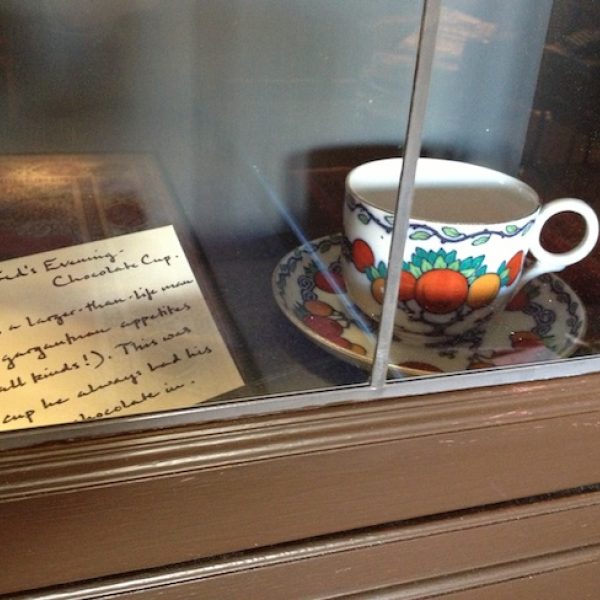 Evening-
Chocolate Cup.
a larger-than-life man
gargantuan appetites
all kinds!). This was
cup he always had his
chocolate in.